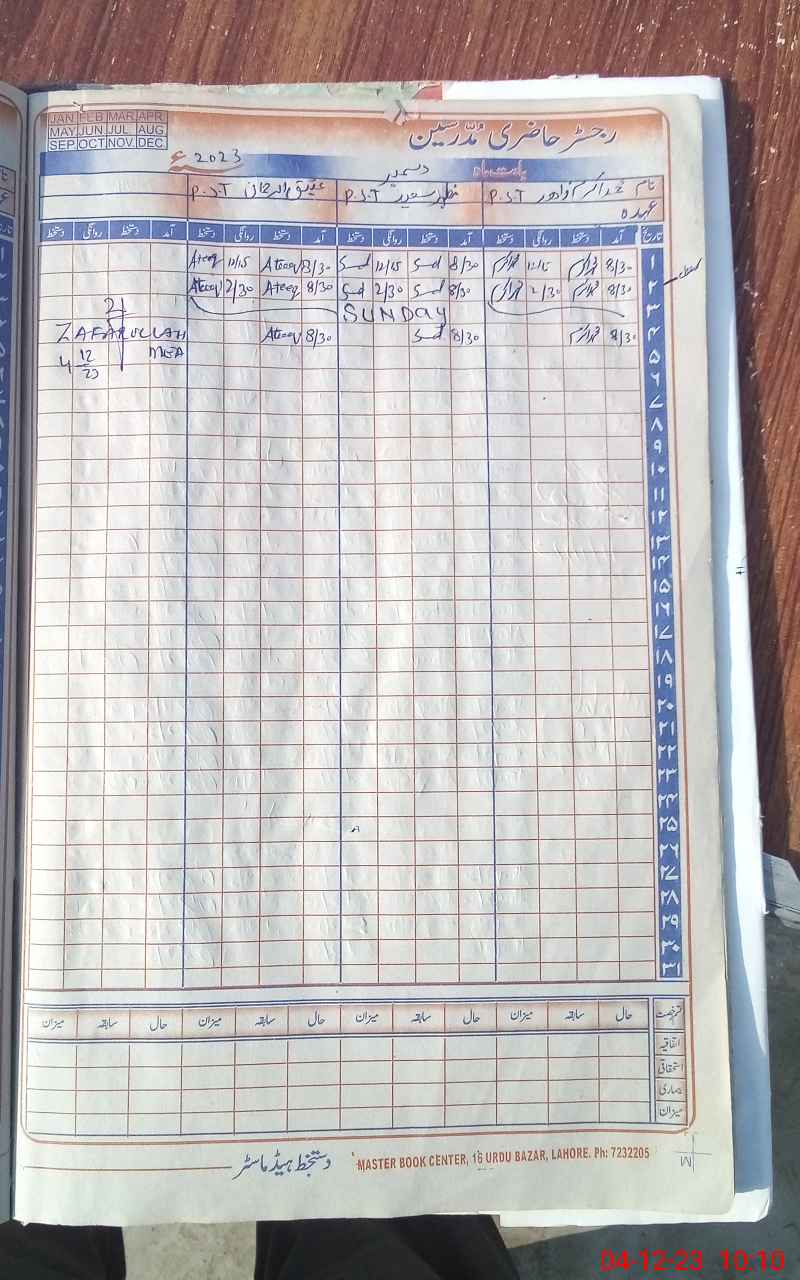 JAN FEB MAR APR
MAY JUN JUL AUG
SEP OCT NOV DEC
رجسٹر حاضری مُدرّسین
بابت ماہ دسمبر 2023ء
نام P.S.T P.S.T عتیق الرحمان P.S.T
عہدہ
تاریخ آمد دستخط روانگی دستخط آمد دستخط روانگی دستخط آمد دستخط روانگی دستخط آمد دستخط روانگی دستخط
۱ 8/30 12/15 8/30 Sd 12/15 Sd 8/30 Ateeq 12/15 Ateeq
۲ 8/30 2/30 8/30 Sd 2/30 Sd 8/30 Ateeq 2/30 Ateeq
۳ SUNDAY
۴ 8/30 8/30 Sd 8/30 Ateeq
ZAFARULLAH
MEA
4 12/23
۵
۶
۷
۸
۹
۱۰
۱۱
۱۲
۱۳
۱۴
۱۵
۱۶
۱۷
۱۸
۱۹
۲۰
۲۱
۲۲
۲۳
۲۴
۲۵
۲۶
۲۷
۲۸
۲۹
۳۰
۳۱
رخصت حال سابقہ میزان حال سابقہ میزان حال سابقہ میزان حال سابقہ میزان
اتفاقیہ
استحقاقی
بیماری
میزان
دستخط ہیڈ ماسٹر
MASTER BOOK CENTER, 16 URDU BAZAR, LAHORE. Ph: 7232205
M
04-12-23 10:10